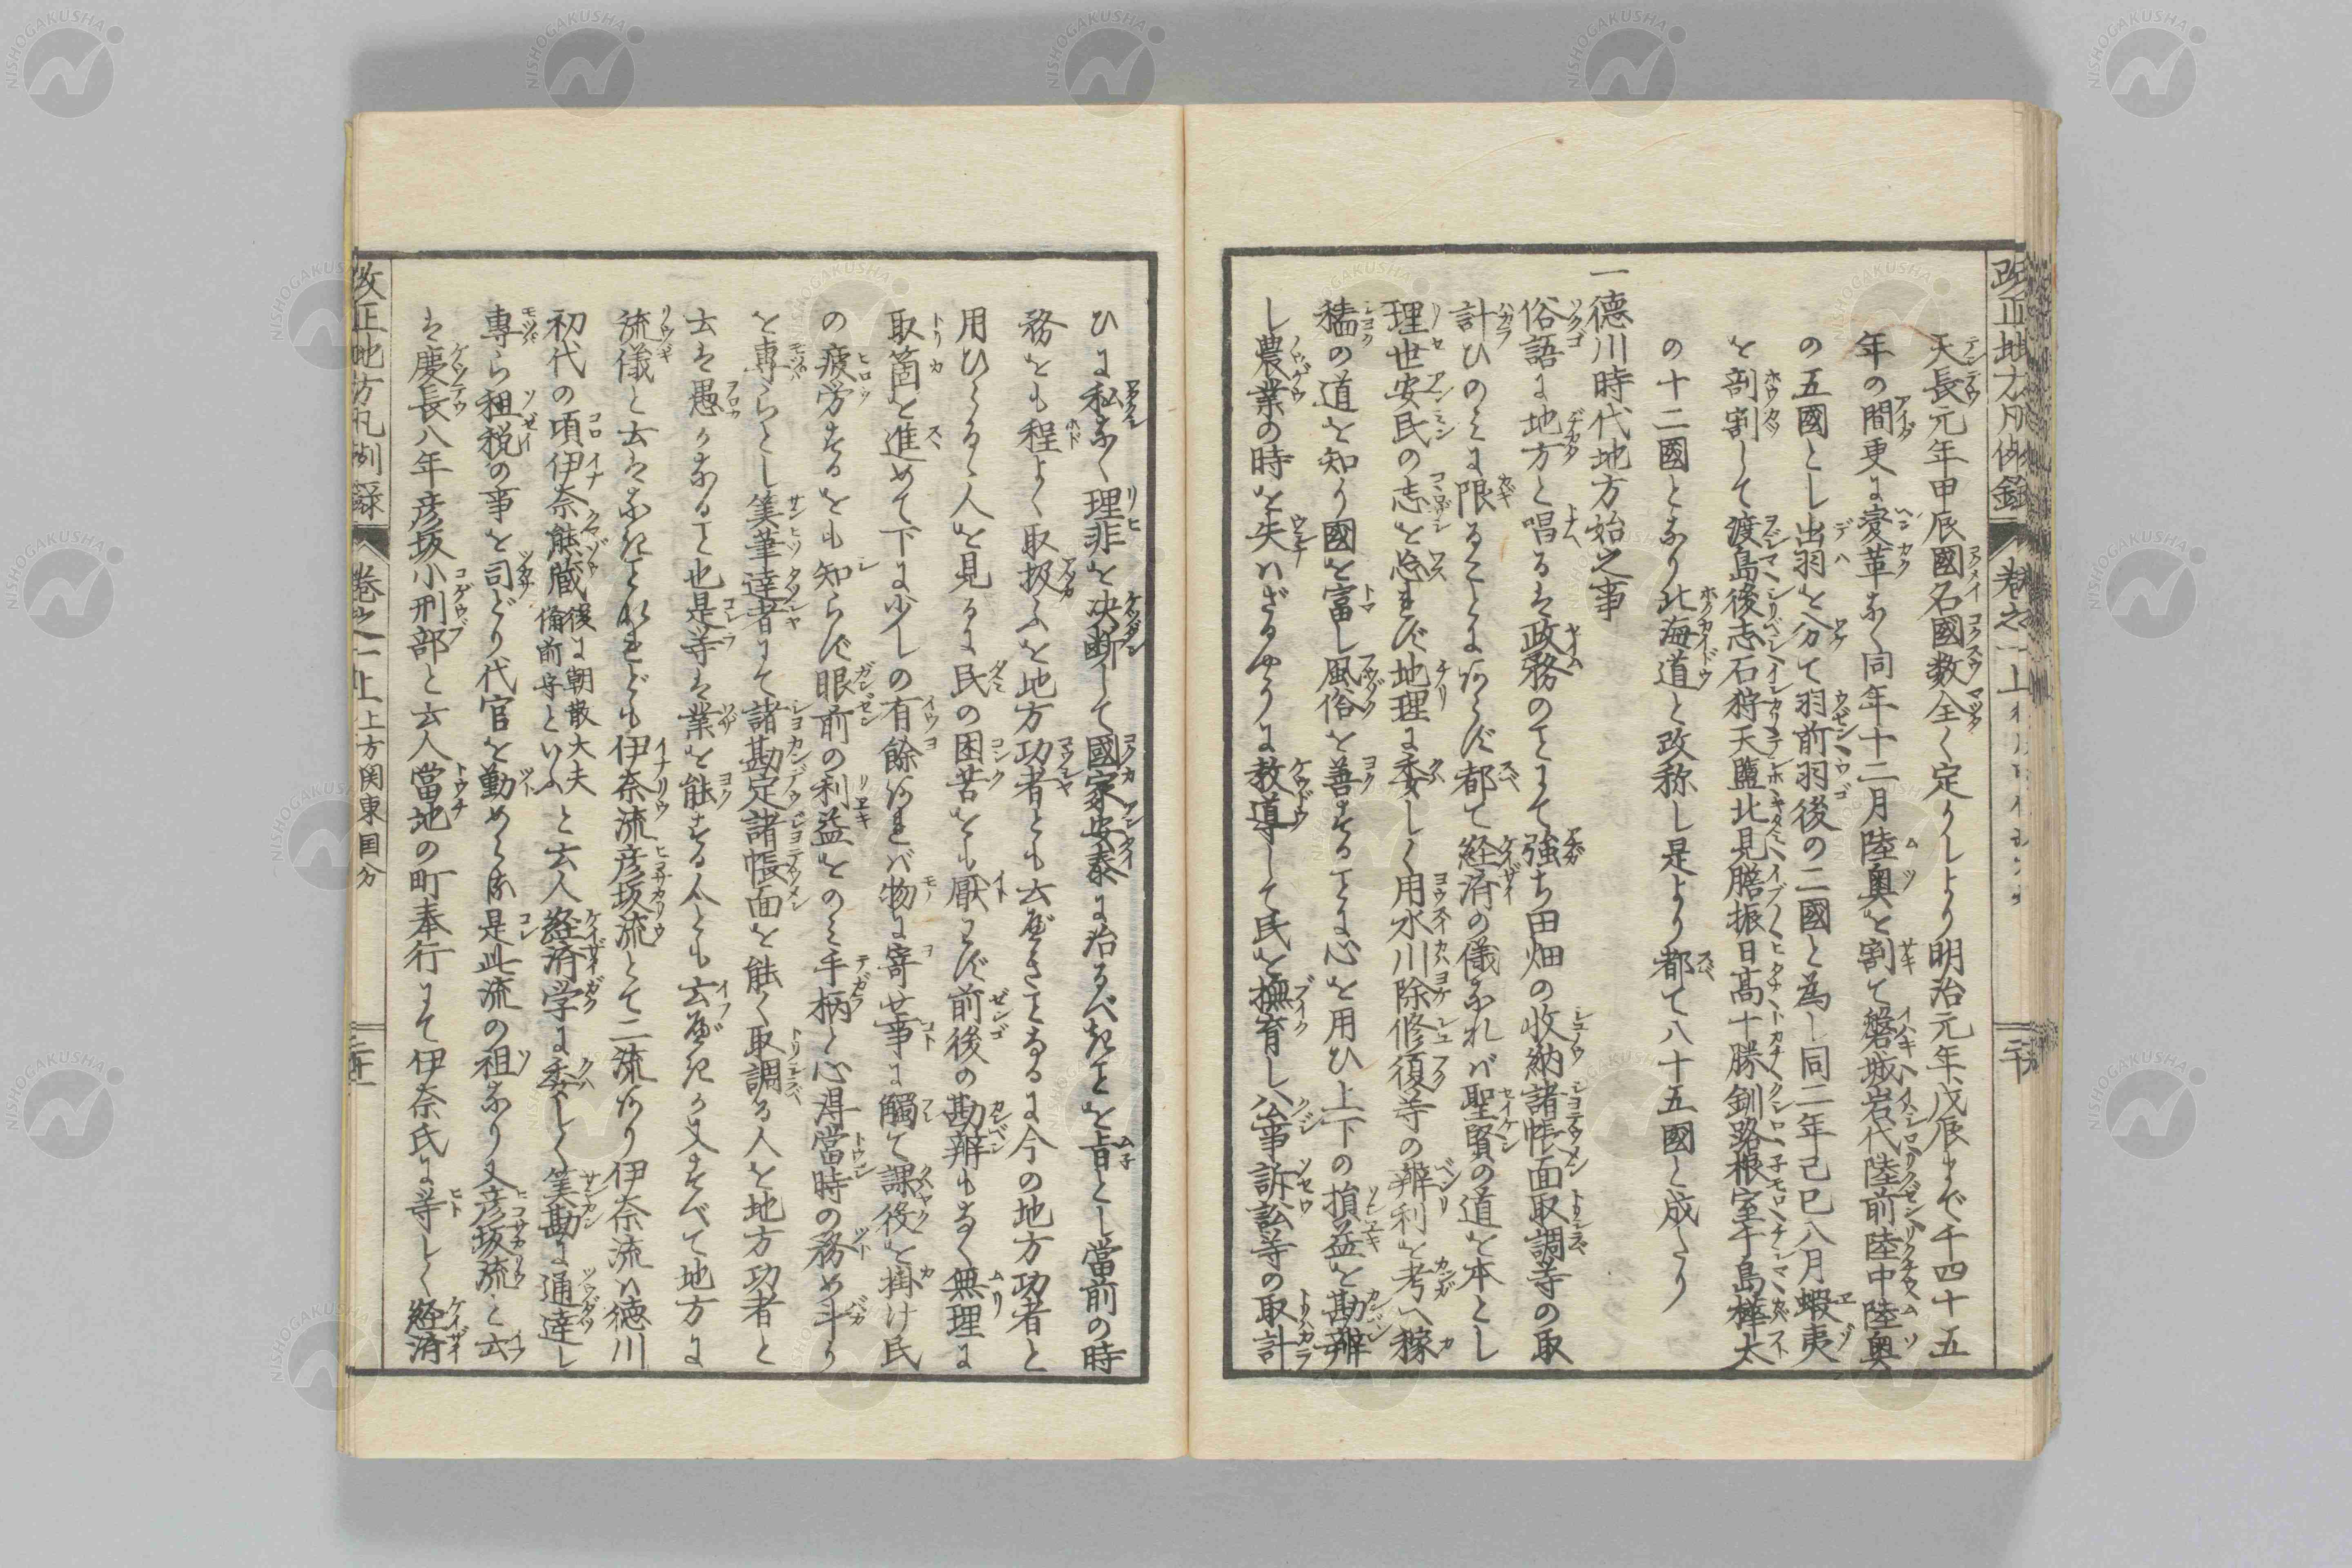 天長元年甲辰國名國数全く定りしより明治元年戊辰まで千四十五
年の間更に変革なく同年十二月陸奥を割て磐城岩代陸前陸中陸奥
の五國とし出羽を分て羽前羽後の二國と為し同二年己巳八月蝦夷
を剖割して渡島後志石狩天鹽北見膽振日高十勝釧路根室千島樺太
の十二國となり北海道と改称し是より都て八十五國と成たり
一徳川時代地方始之事
俗語に地方と唱るは政務のことにて強ち田畑の收納諸帳面取調等の取
計ひのミに限ることにあらず都て経済の儀なれバ聖賢の道を本とし
理世安民の志を忘れず地理に委しく用水川除修復等の辨利を考へ稼
穡の道を知り國を富し風俗を善することに心を用ひ上下の損益を勘辨
し農業の時を失ハざるやうに教導して民を撫育し公事訴訟等の取計
ひに私なく理非を决断して國家安泰に治るべきことを旨とし當前の時
務をも程よく取扱ふを地方功者とも云べきことなるに今の地方功者と
用ひらるゝ人を見るに民の困苦をも厭わず前後の勘辨もなく無理に
取箇を進めて下に少しの有餘あれバ物に寄せ事に觸て課役を掛け民
の疲労するをも知らず眼前の利益をのミ手柄と心得當時の務め斗り
を専らとし筭筆達者にて諸勘定諸帳面を能く取調る人を地方功者と
云は愚かなること也是等は業を能する人とも云べきか又すべて地方に
流儀と云はなきことなれども伊奈流彦坂流とて二流あり伊奈流ハ徳川
初代の頃伊奈熊蔵後に朝散大夫備前守といふと云人経済学に委しく筭勘に通達し
専ら租税の事を司どり代官を勤めらる是此流の祖なり又彦坂流と云
は慶長八年彦坂小刑部と云人當地の町奉行にて伊奈氏に等しく経済
改正地方凡例録
巻之一上
上方関東目分
改正地方凡例録
巻之一上
二十